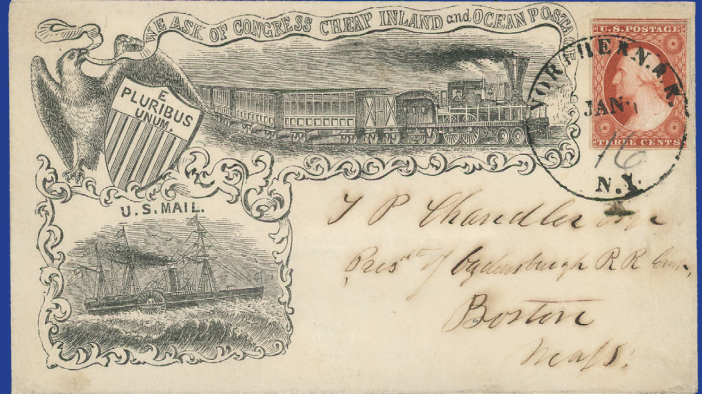 WE ASK OF CONGRESS CHEAP INLAND and OCEAN POSTA
E
PLURIBUS
UNUM.
U.S. MAIL.
U.S. POSTAGE
THREE CENTS
NORTHERN R.R.
JAN.
16
N.Y.
T P Chandler
Presᵗ of Ogdensburgh R R
Boston
Mass.